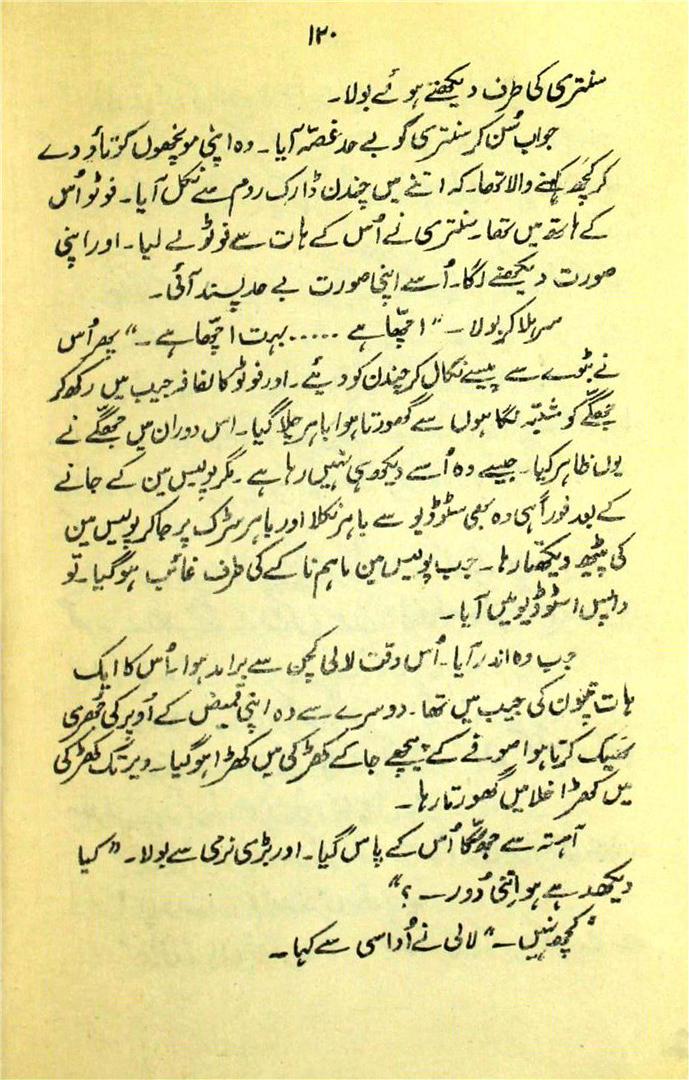 ۱۲۰
سنتری کی طرف دیکھتے ہوئے بولا۔
جواب سُن کر سنتری کو بے حد غصّہ آیا۔ وہ اپنی مونچھوں کو تاؤ دے
کر کچھ کہنے والا تھا۔ کہ اتنے میں چندن ڈارک روم سے نکل آیا۔ فوٹو اُس
کے ہاتھ میں تھا۔ سنتری نے اُس کے ہات سے فوٹو لے لیا۔ اور اپنی
صورت دیکھنے لگا۔ اُسے اپنی صورت بے حد پسند آئی۔
سر ہلا کر بولا۔ "اچھّا ہے ..... بہت اچھّا ہے۔" پھر اُس
نے بٹوے سے پیسے نکال کر چندن کو دیئے۔ اور فوٹو کا لفافہ جیب میں رکھ کر
جھگّے کو مشتبہ نگاہوں سے گھورتا ہوا باہر چلا گیا۔ اس دوران میں جھگّے نے
یوں ظاہر کیا۔ جیسے وہ اُسے دیکھ ہی نہیں رہا ہے۔ مگر پولیس مین کے جانے
کے بعد فوراً ہی وہ بھی سٹوڈیو سے باہر نکلا اور باہر سڑک پر جا کر پولیس مین
کی پیٹھ دیکھتا رہا۔ جب پولیس مین ماہم ناکے کی طرف غائب ہو گیا۔ تو
واپس اسٹوڈیو میں آیا۔
جب وہ اندر آیا۔ اُس وقت لالی کچن سے برآمد ہوا۔ اُس کا ایک
ہات پتلون کی جیب میں تھا۔ دوسرے سے وہ اپنی قمیض کے اُوپر کی چھری
ٹھیک کرتا ہوا صوفے کے پیچھے جا کے کھڑکی میں کھڑا ہو گیا۔ دیر تک کھڑکی
میں کھڑا خلا میں گھورتا رہا۔
آہستہ سے جھگّا اُس کے پاس گیا۔ اور بڑی نرمی سے بولا۔ "کیا
دیکھ رہے ہو اِتنی دُور ۔ ؟"
"کچھ نہیں۔" لالی نے اُداسی سے کہا۔